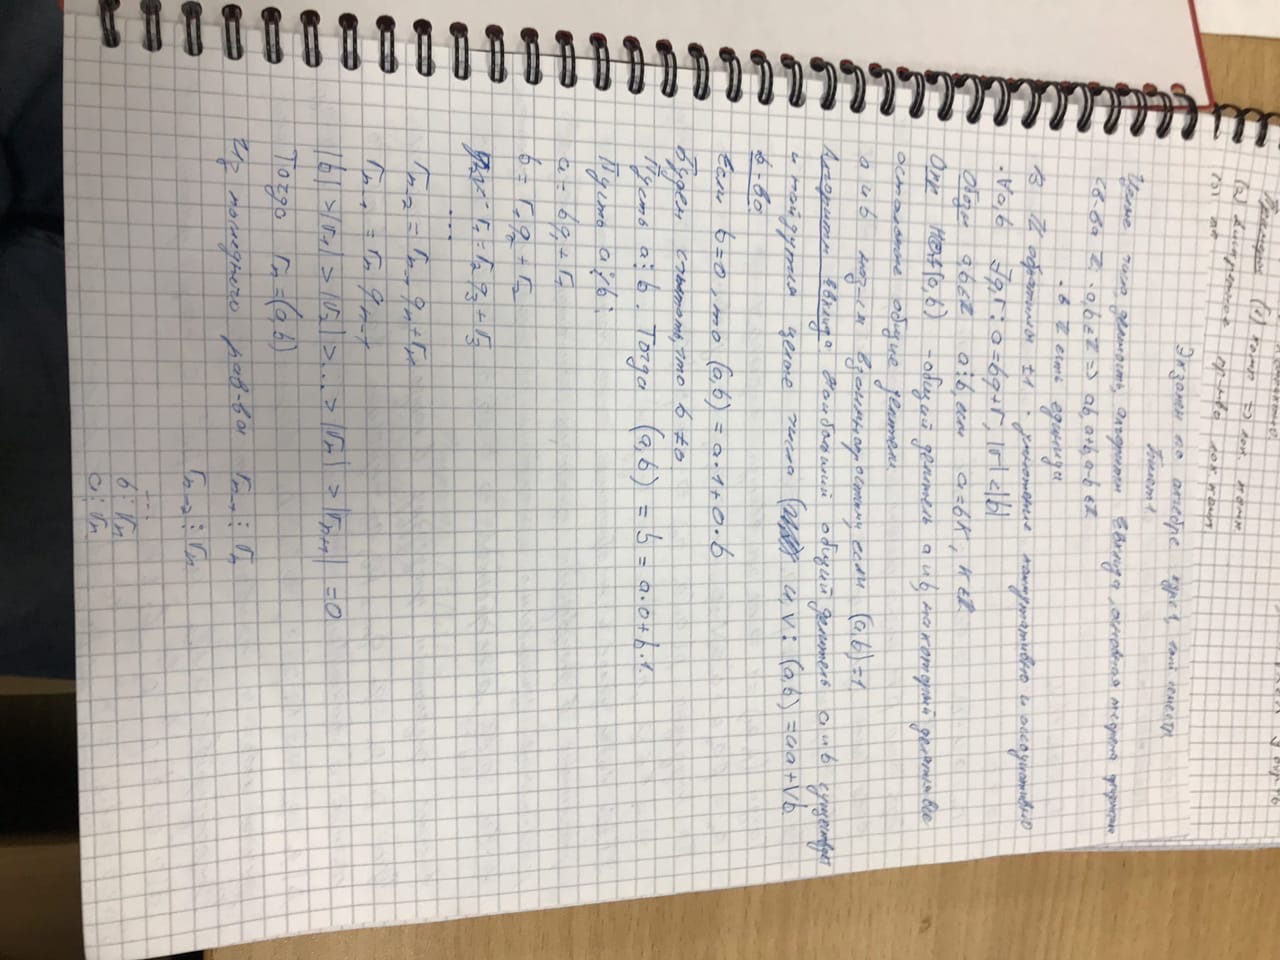 Примеры (1) комп => лок. комп.
(2) дискретное пр-тво лок. комп.
(3)
Экзамен по алгебре курс 1, семестр
Билет 1.
Целые числа, делимость, алгоритм Евклида, основная теорема арифметики
Св-ва ℤ: · a,b ∈ ℤ => ab, a+b, a-b ∈ ℤ
· в ℤ есть единица
В ℤ обратимы ±1 · умножение коммутативно и ассоциативно
· ∀a,b ∃q,r: a=bq+r, |r|<|b|
Обозн a,b∈ℤ a⋮b, если a=bk, k∈ℤ
Опр НОД(a,b) - общий делитель a и b, на который делятся все
остальные общие делители.
a и b наз-ся взаимнопростыми, если (a,b)=1.
Алгоритм Евклида Наибольший общий делитель a и b существует
и найдутся целые числа u,v: (a,b)=ua+vb.
D-во:
Если b=0, то (a,b) = a·1+0·b
Будем считать, что b≠0
Пусть a⋮b. Тогда (a,b) = b = a·0+b·1.
Пусть a⋮̸b:
a = bq₁+r₁
b = r₁q₂+r₂
r₁=r₂q₃+r₃
...
rₙ₋₂=rₙ₋₁qₙ+rₙ
rₙ₋₁=rₙqₙ₋₁
|b|>|r₁|>|r₂|>...>|rₙ|>|rₙ₊₁|=0
Тогда rₙ=(a,b)
Из последнего рав-ва rₙ₋₁⋮rₙ
rₙ₋₂⋮rₙ
...
b⋮rₙ
a⋮rₙ